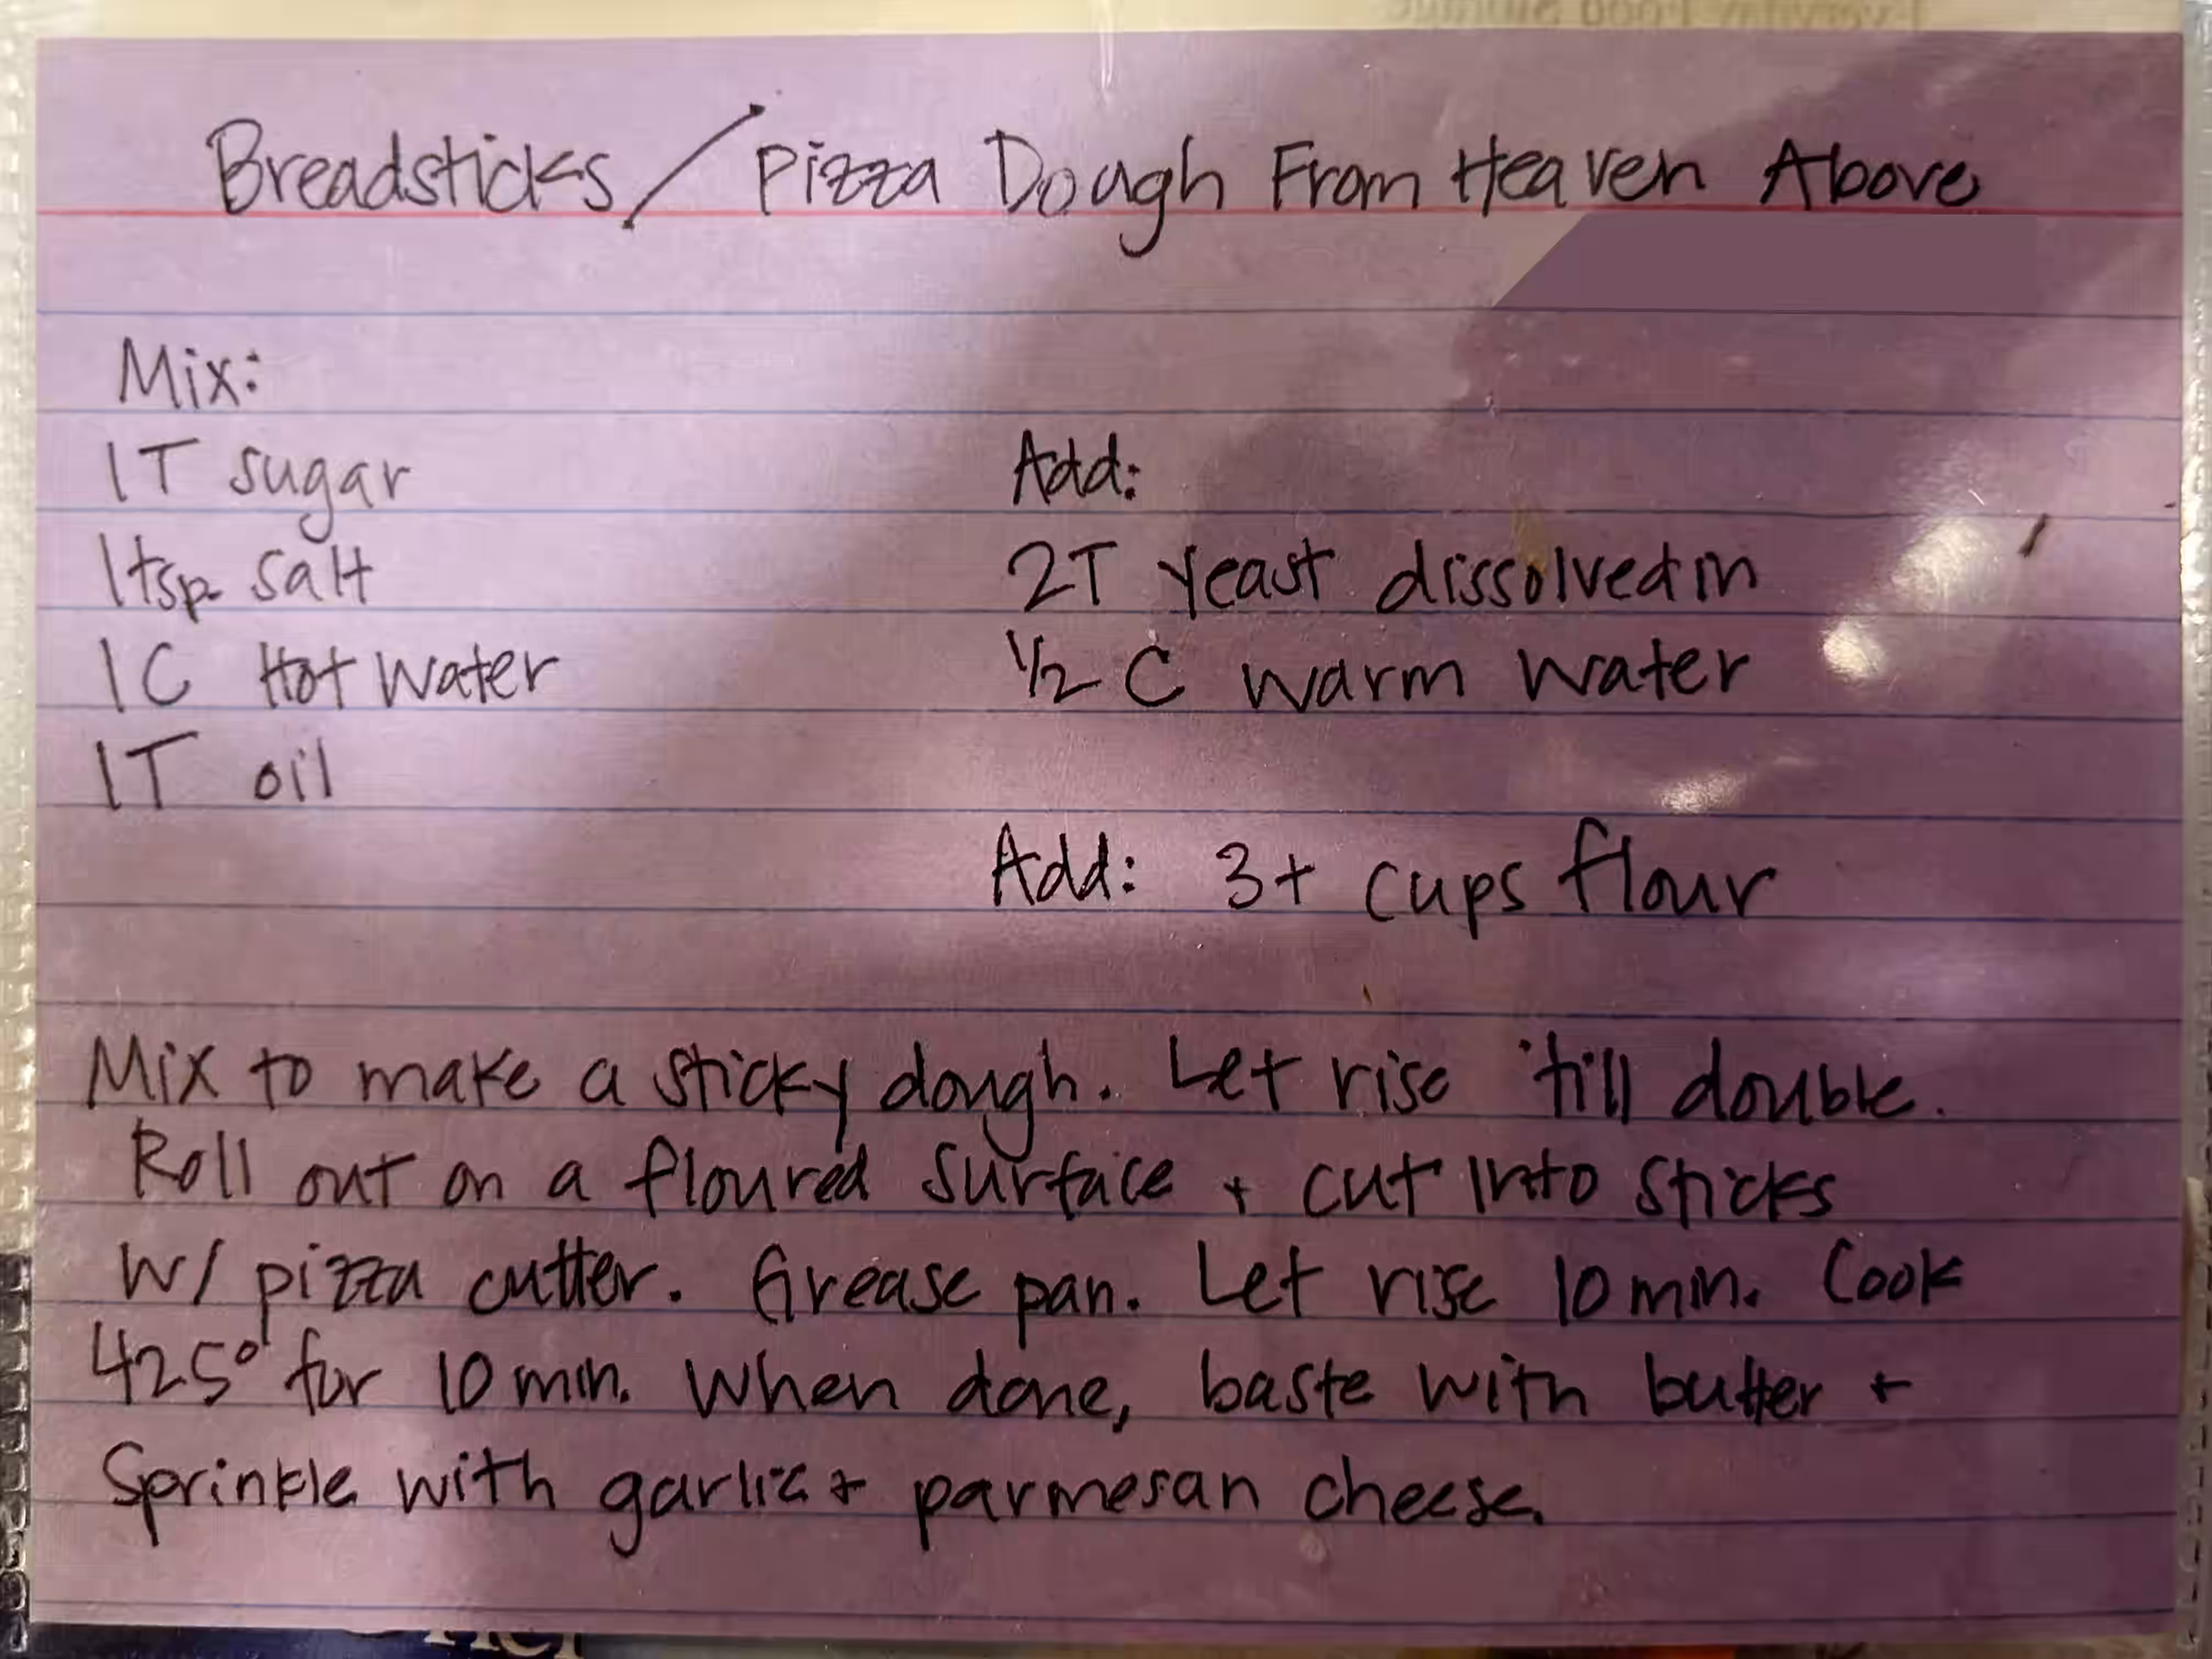 Breadsticks/Pizza Dough From Heaven Above
Mix:
1T sugar
1tsp. salt
1C Hot Water
1T oil
Add:
2T yeast dissolved in
1/2 C warm water
Add: 3+ cups flour
Mix to make a sticky dough. Let rise 'till double.
Roll out on a floured surface + cut into sticks
w/ pizza cutter. Grease pan. Let rise 10 min. Cook
425° for 10 min. When done, baste with butter +
Sprinkle with garlic + parmesan cheese.